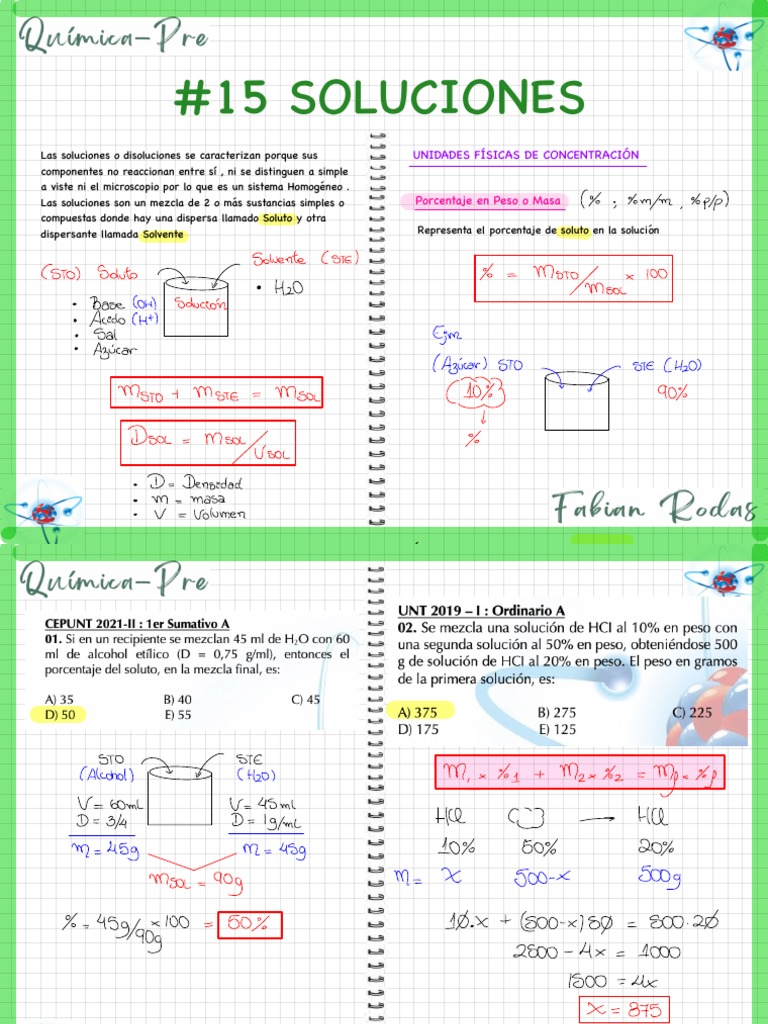 Química-Pre
#15 SOLUCIONES
Las soluciones o disoluciones se caracterizan porque sus
componentes no reaccionan entre sí , ni se distinguen a simple
a viste ni el microscopio por lo que es un sistema Homogéneo .
Las soluciones son un mezcla de 2 o más sustancias simples o
compuestas donde hay una dispersa llamado Soluto y otra
dispersante llamada Solvente
(STO) Soluto
Solvente (STE)
• Base (OH)
• Acido (H+)
• Sal
• Azúcar
Solución
• H2O
mSTO + mSTE = mSOL
DSOL = mSOL/VSOL
• D = Densidad
• m = masa
• V = Volumen
UNIDADES FÍSICAS DE CONCENTRACIÓN
Porcentaje en Peso o Masa (% ; %m/m , %p/p)
Representa el porcentaje de soluto en la solución
% = mSTO/mSOL × 100
Ejm
(Azúcar) STO
STE (H2O)
10%
90%
%
Fabian Rodas
Química-Pre
CEPUNT 2021-II : 1er Sumativo A
01. Si en un recipiente se mezclan 45 ml de H2O con 60
ml de alcohol etílico (D = 0,75 g/ml), entonces el
porcentaje del soluto, en la mezcla final, es:
A) 35 B) 40 C) 45
D) 50 E) 55
STO
(Alcohol)
STE
(H2O)
V = 60ml
D = 3/4
m = 45g
V = 45ml
D = 1g/ml
m = 45g
mSOL = 90g
% = 45g/90g × 100 = 50%
UNT 2019 – I : Ordinario A
02. Se mezcla una solución de HCI al 10% en peso con
una segunda solución al 50% en peso, obteniéndose 500
g de solución de HCI al 20% en peso. El peso en gramos
de la primera solución, es:
A) 375 B) 275 C) 225
D) 175 E) 125
m1 × %1 + m2 × %2 = mf × %f
HCl HCl
10% 50% 20%
m = x 500-x 500g
10.x + (500-x)50 = 500.20
2500 - 4x = 1000
1500 = 4x
x = 375